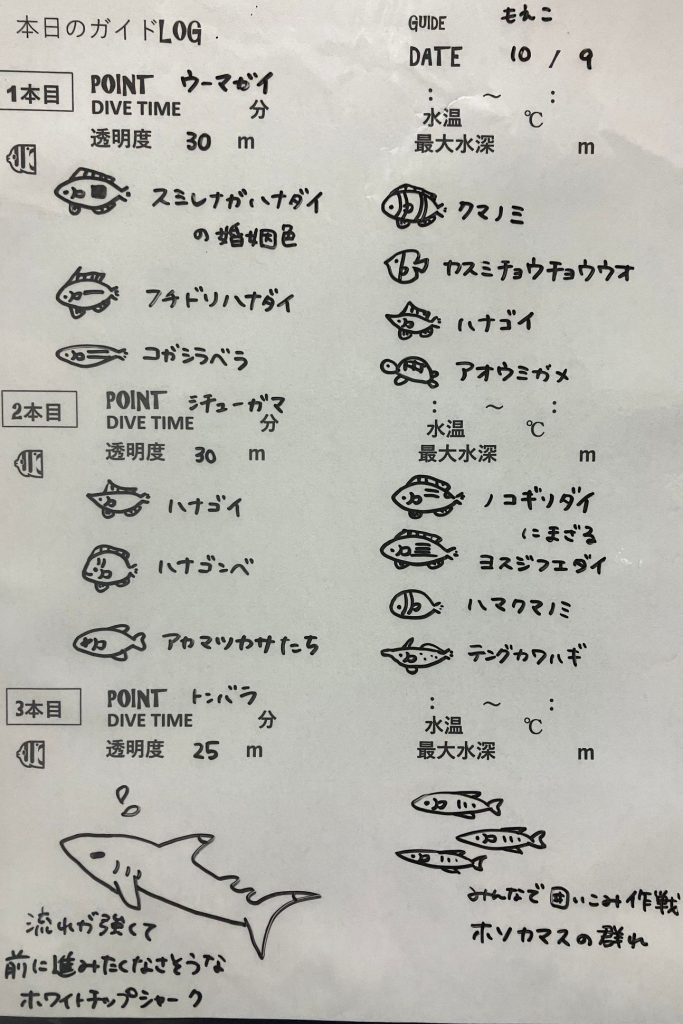 本日のガイドLOG
GUIDE もえこ
DATE 10 / 9
1本目 POINT ウーマガイ : ～ :
DIVE TIME 分 水温 ℃
透明度 30 m 最大水深 m
スミレナガハナダイ
の婚姻色
フチドリハナダイ
コガシラベラ
クマノミ
カスミチョウチョウウオ
ハナゴイ
アオウミガメ
2本目 POINT シチューガマ : ～ :
DIVE TIME 分 水温 ℃
透明度 30 m 最大水深 m
ハナゴイ
ハナゴンベ
アカマツカサたち
ノコギリダイ
にまざる
ヨスジフエダイ
ハマクマノミ
テングカワハギ
3本目 POINT トンバラ : ～ :
DIVE TIME 分 水温 ℃
透明度 25 m 最大水深 m
流れが強くて
前に進みたくなさそうな
ホワイトチップシャーク
みんなで囲いこみ作戦
ホソカマスの群れ